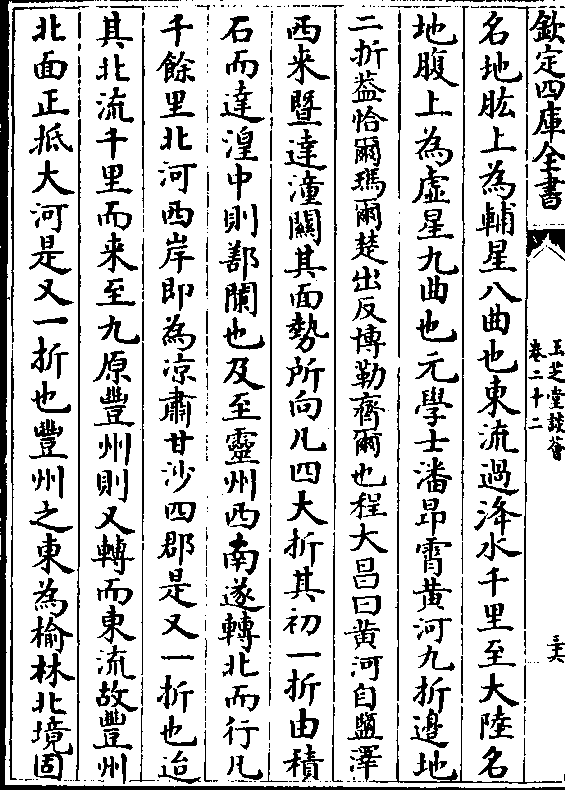 欽定四庫全書
玉芝堂談薈
卷二十二
三六
名地肱上為輔星八曲也東流過洚水千里至大陸名
地腹上為虛星九曲也元學士潘昂霄黃河九折邉地
二折葢恰爾瑪爾楚出反博勒齊爾也程大昌曰黃河自鹽澤
西来暨達潼關其面勢所向凡四大折其初一折由積
石而達湟中則鄯闌也及至靈州西南遂轉北而行凡
千餘里北河西岸即為凉肅甘沙四郡是又一折也迨
其北流千里而来至九原豐州則又轉而東流故豐州
北面正抵大河是又一折也豐州之東為榆林北境固